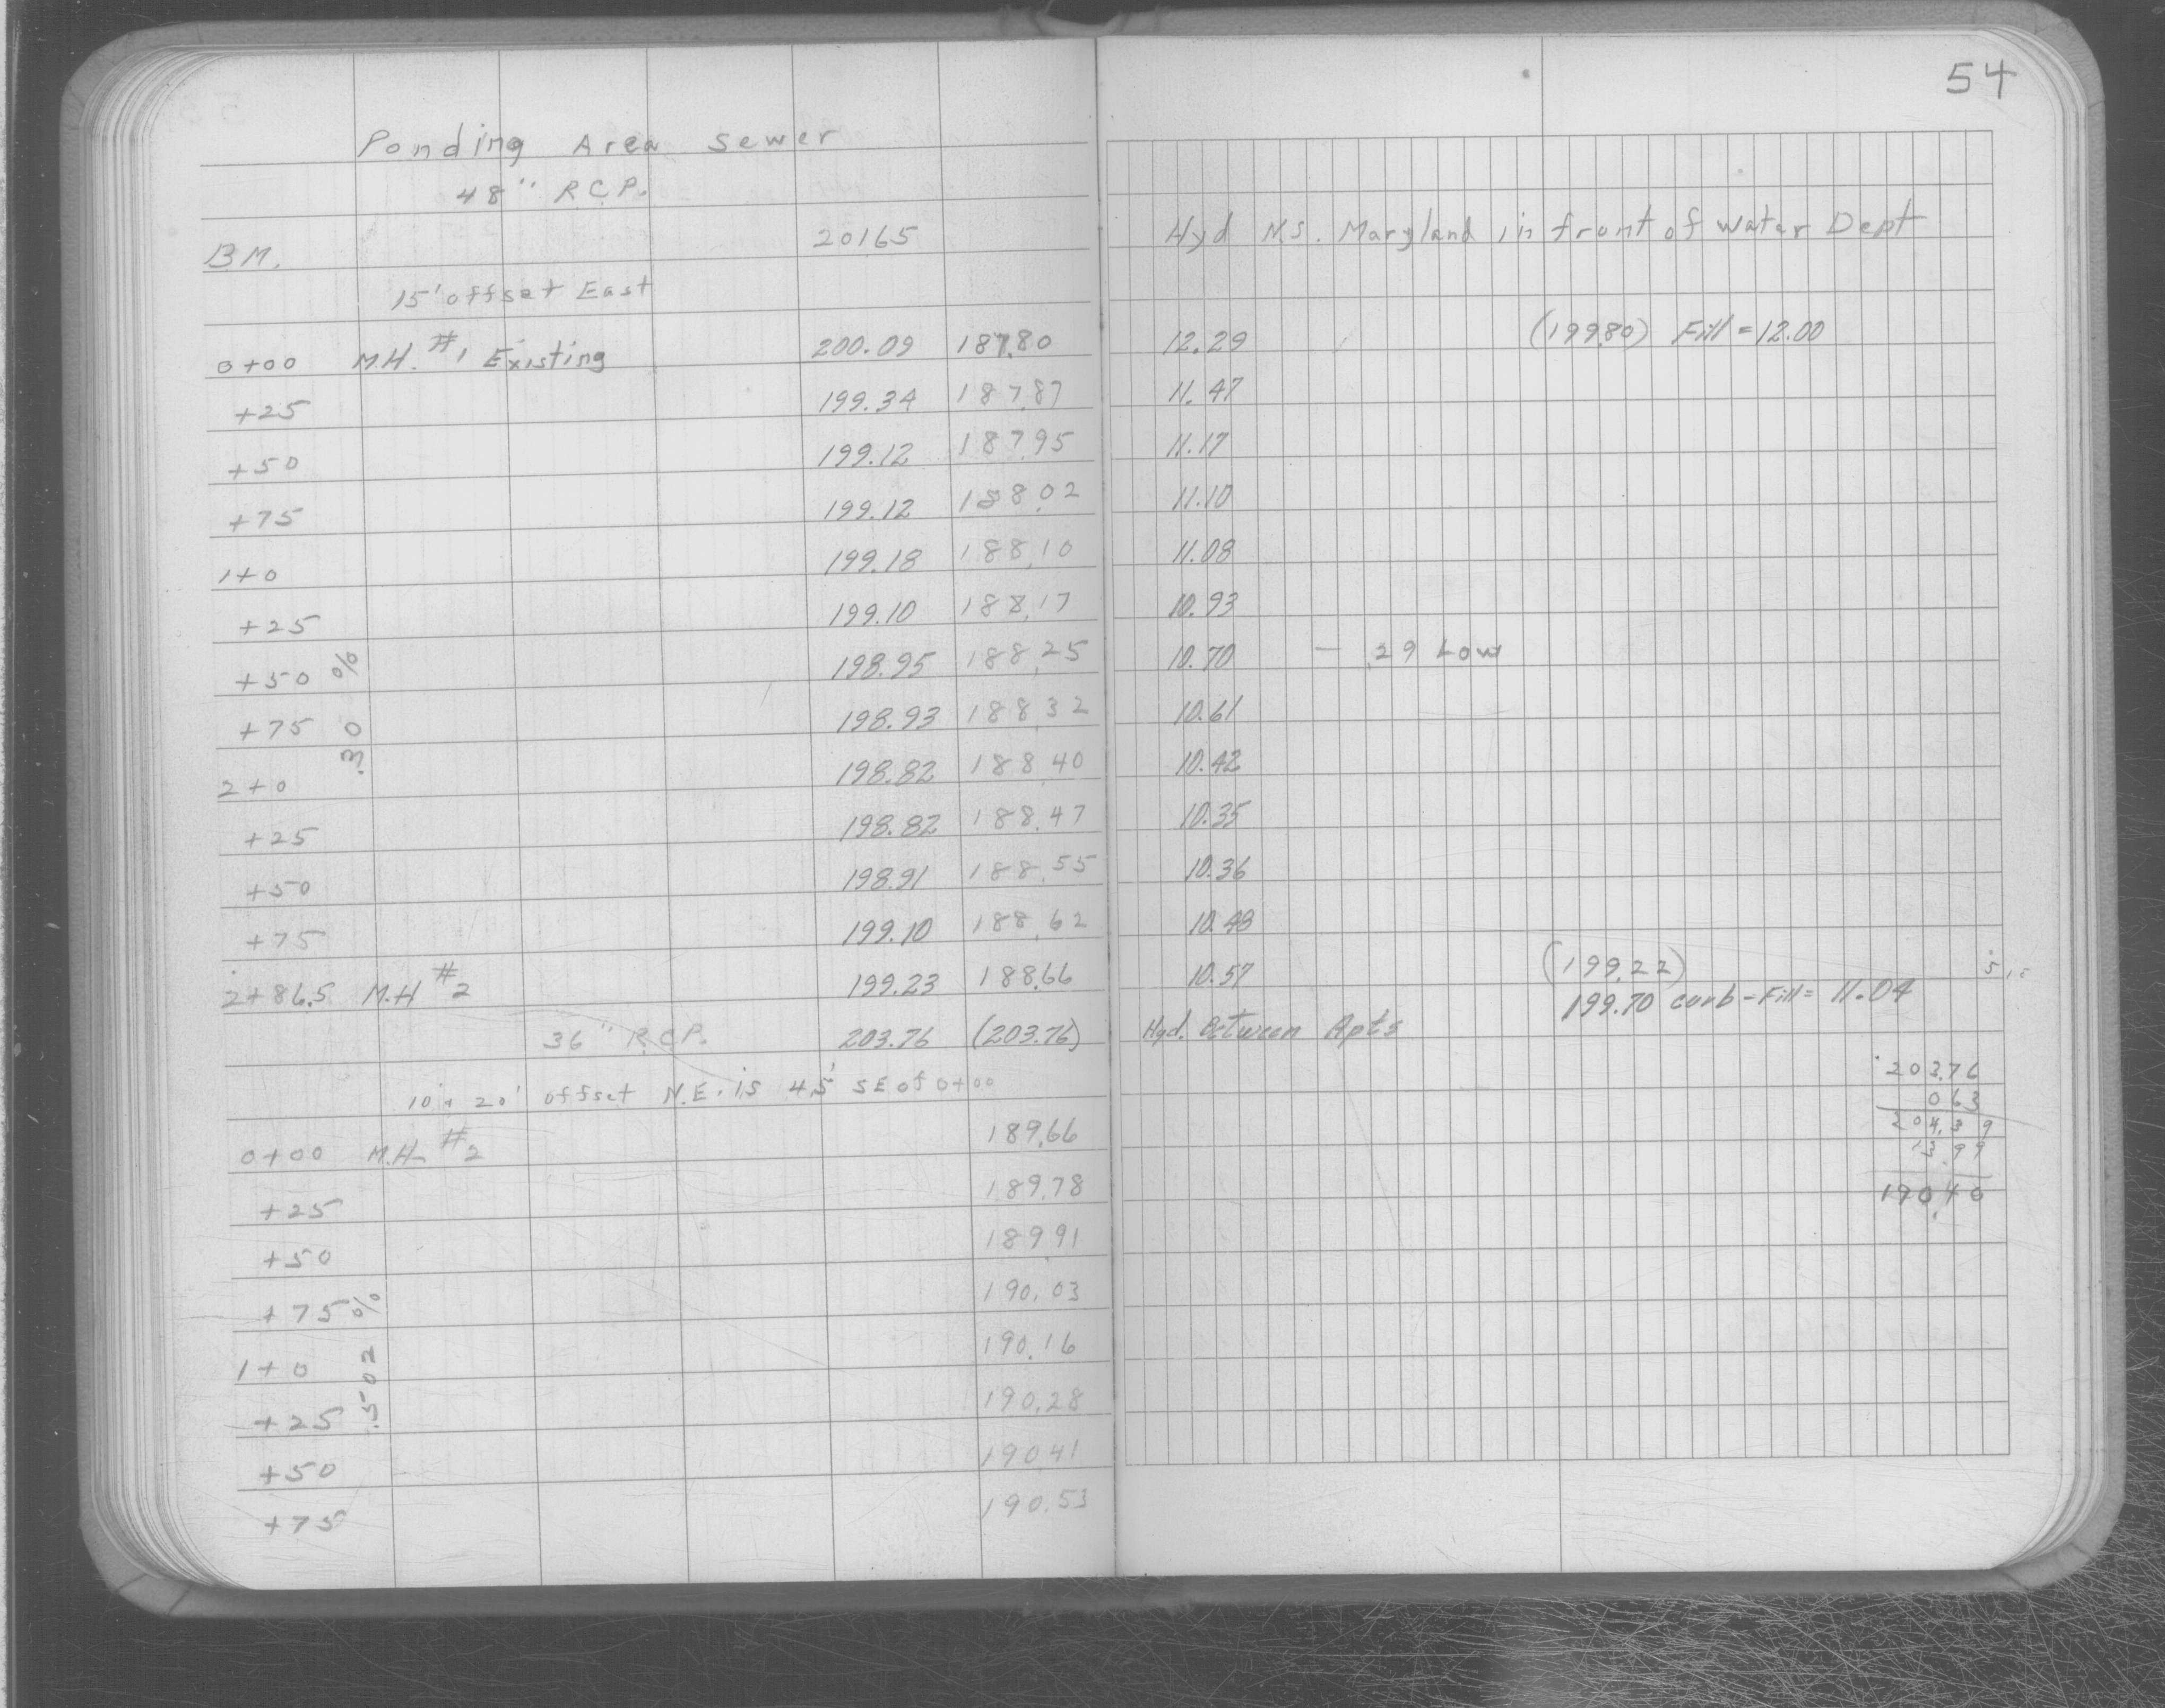 54
Ponding Area Sewer
48" R.C.P.
B.M. 20165 Hyd N.S. Maryland in front of Water Dept
15' offset East
0+00 M.H. #1 Existing 200.09 187.80 12.29 (199.80) Fill = 12.00
+25 199.34 187.87 11.47
+50 199.12 187.95 11.17
+75 199.12 188.02 11.10
1+0 199.18 188.10 11.08
+25 199.10 188.17 10.93
+50 198.95 188.25 10.70 — .29 Low
+75 198.93 188.32 10.61
.30 %
2+0 198.82 188.40 10.42
+25 198.82 188.47 10.35
+50 198.91 188.55 10.36
+75 199.10 188.62 10.48
2+86.5 M.H #2 199.23 188.66 10.57 (199.22)
199.70 curb - Fill = 11.04
36" R.C.P. 203.76 (203.76) Hyd. Between Apts
10' & 20' offset N.E. is 45' SE of 0+00
203.76
0 63
204.39
13.99
190.40
0+00 M.H. #2 189.66
+25 189.78
+50 189.91
+75 190.03
1+0 190.16
.502 %
+25 190.28
+50 190.41
+75 190.53